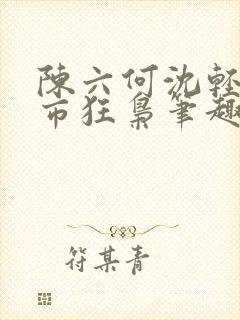 陳六何沈輕
市狂梟筆趣
符某青